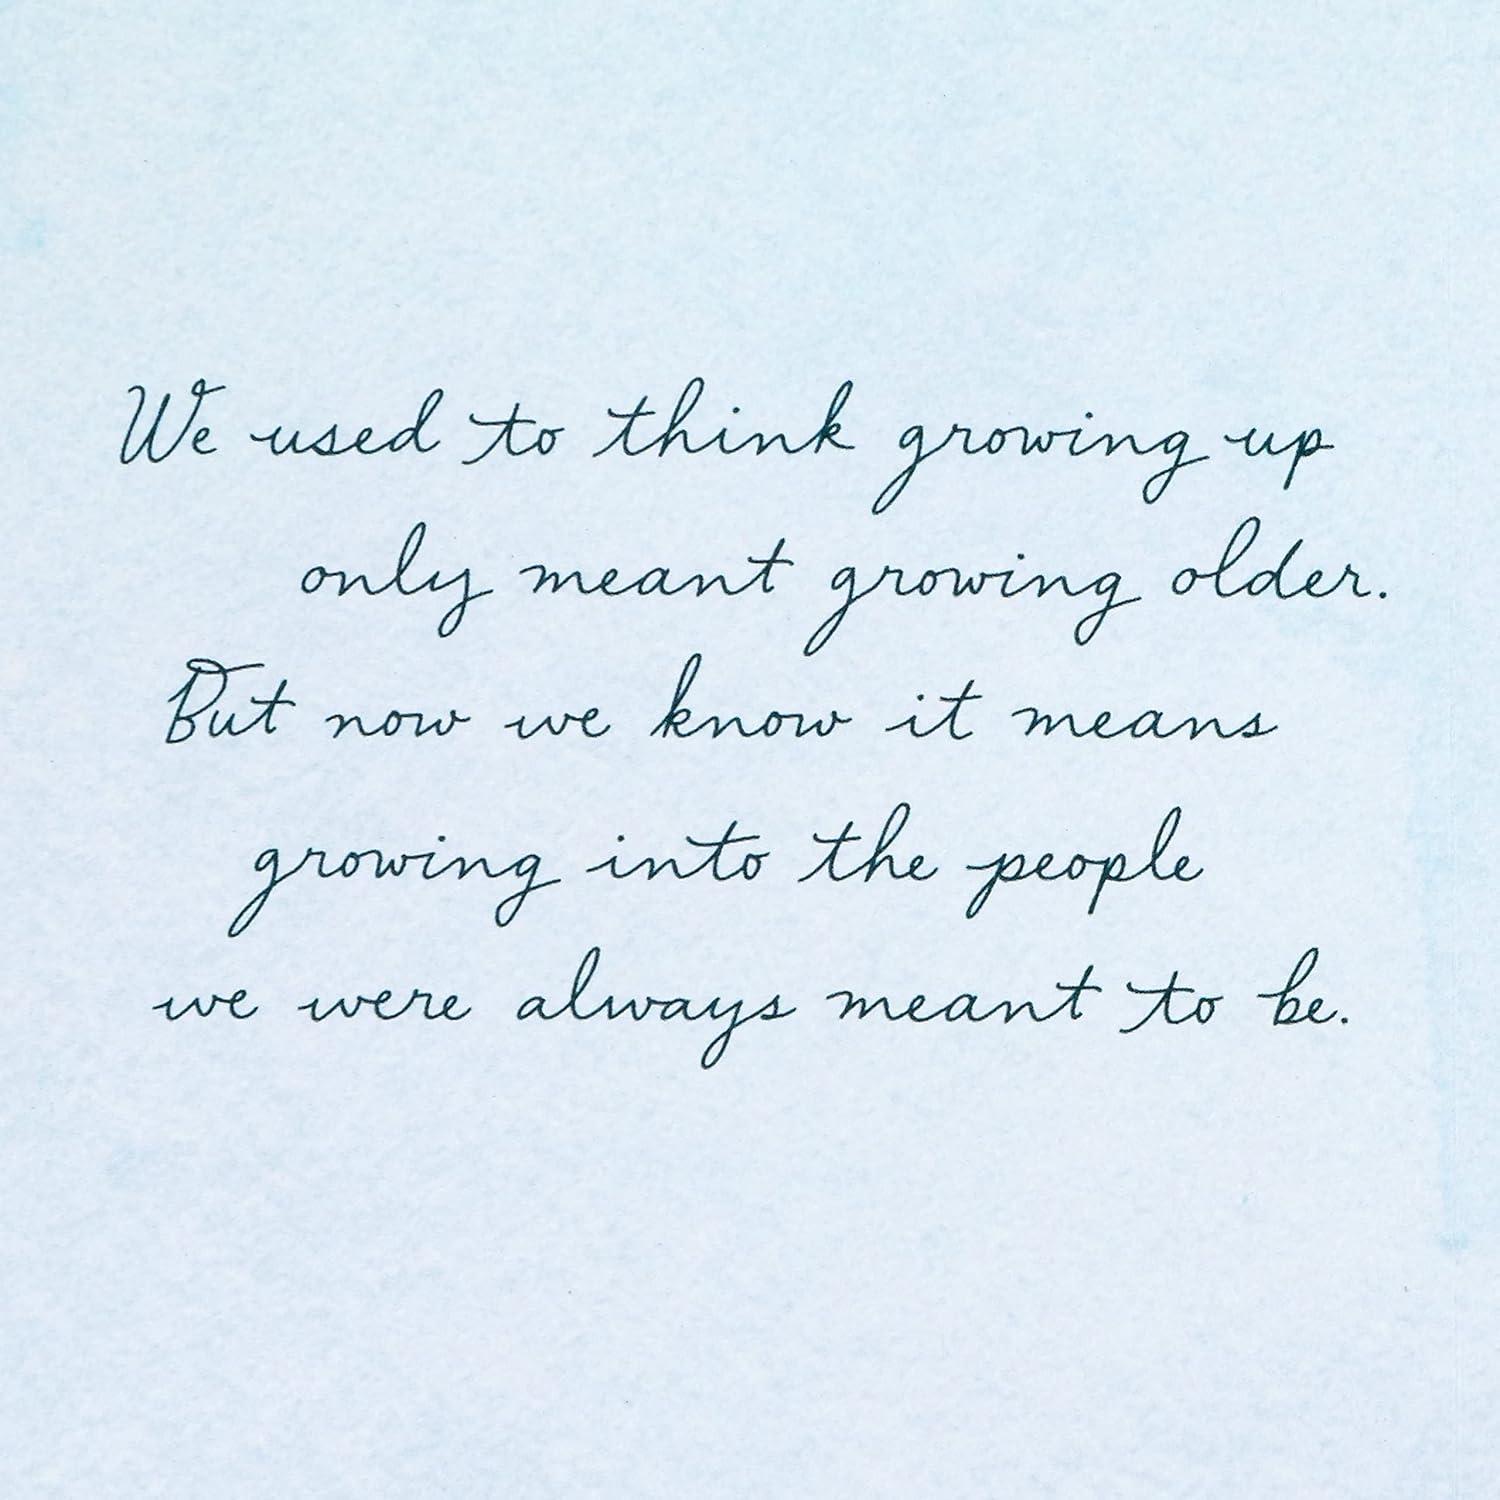 We used to think growing up
only meant growing older.
But now we know it means
growing into the people
we were always meant to be.